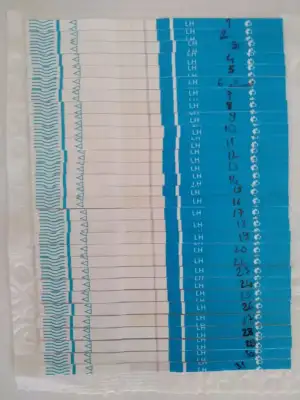 LH 1
LH 2
LH 3
LH 4
LH 5
LH
LH 7
LH 8
LH 9
LH 10
LH 11
LH 12
LH 13
LH 14
LH 15
LH 16
LH 17
LH 18
LH 19
LH 20
LH
LH 23
LH 24
LH 25
LH 26
LH 27
LH 28
LH
LH
LH 31